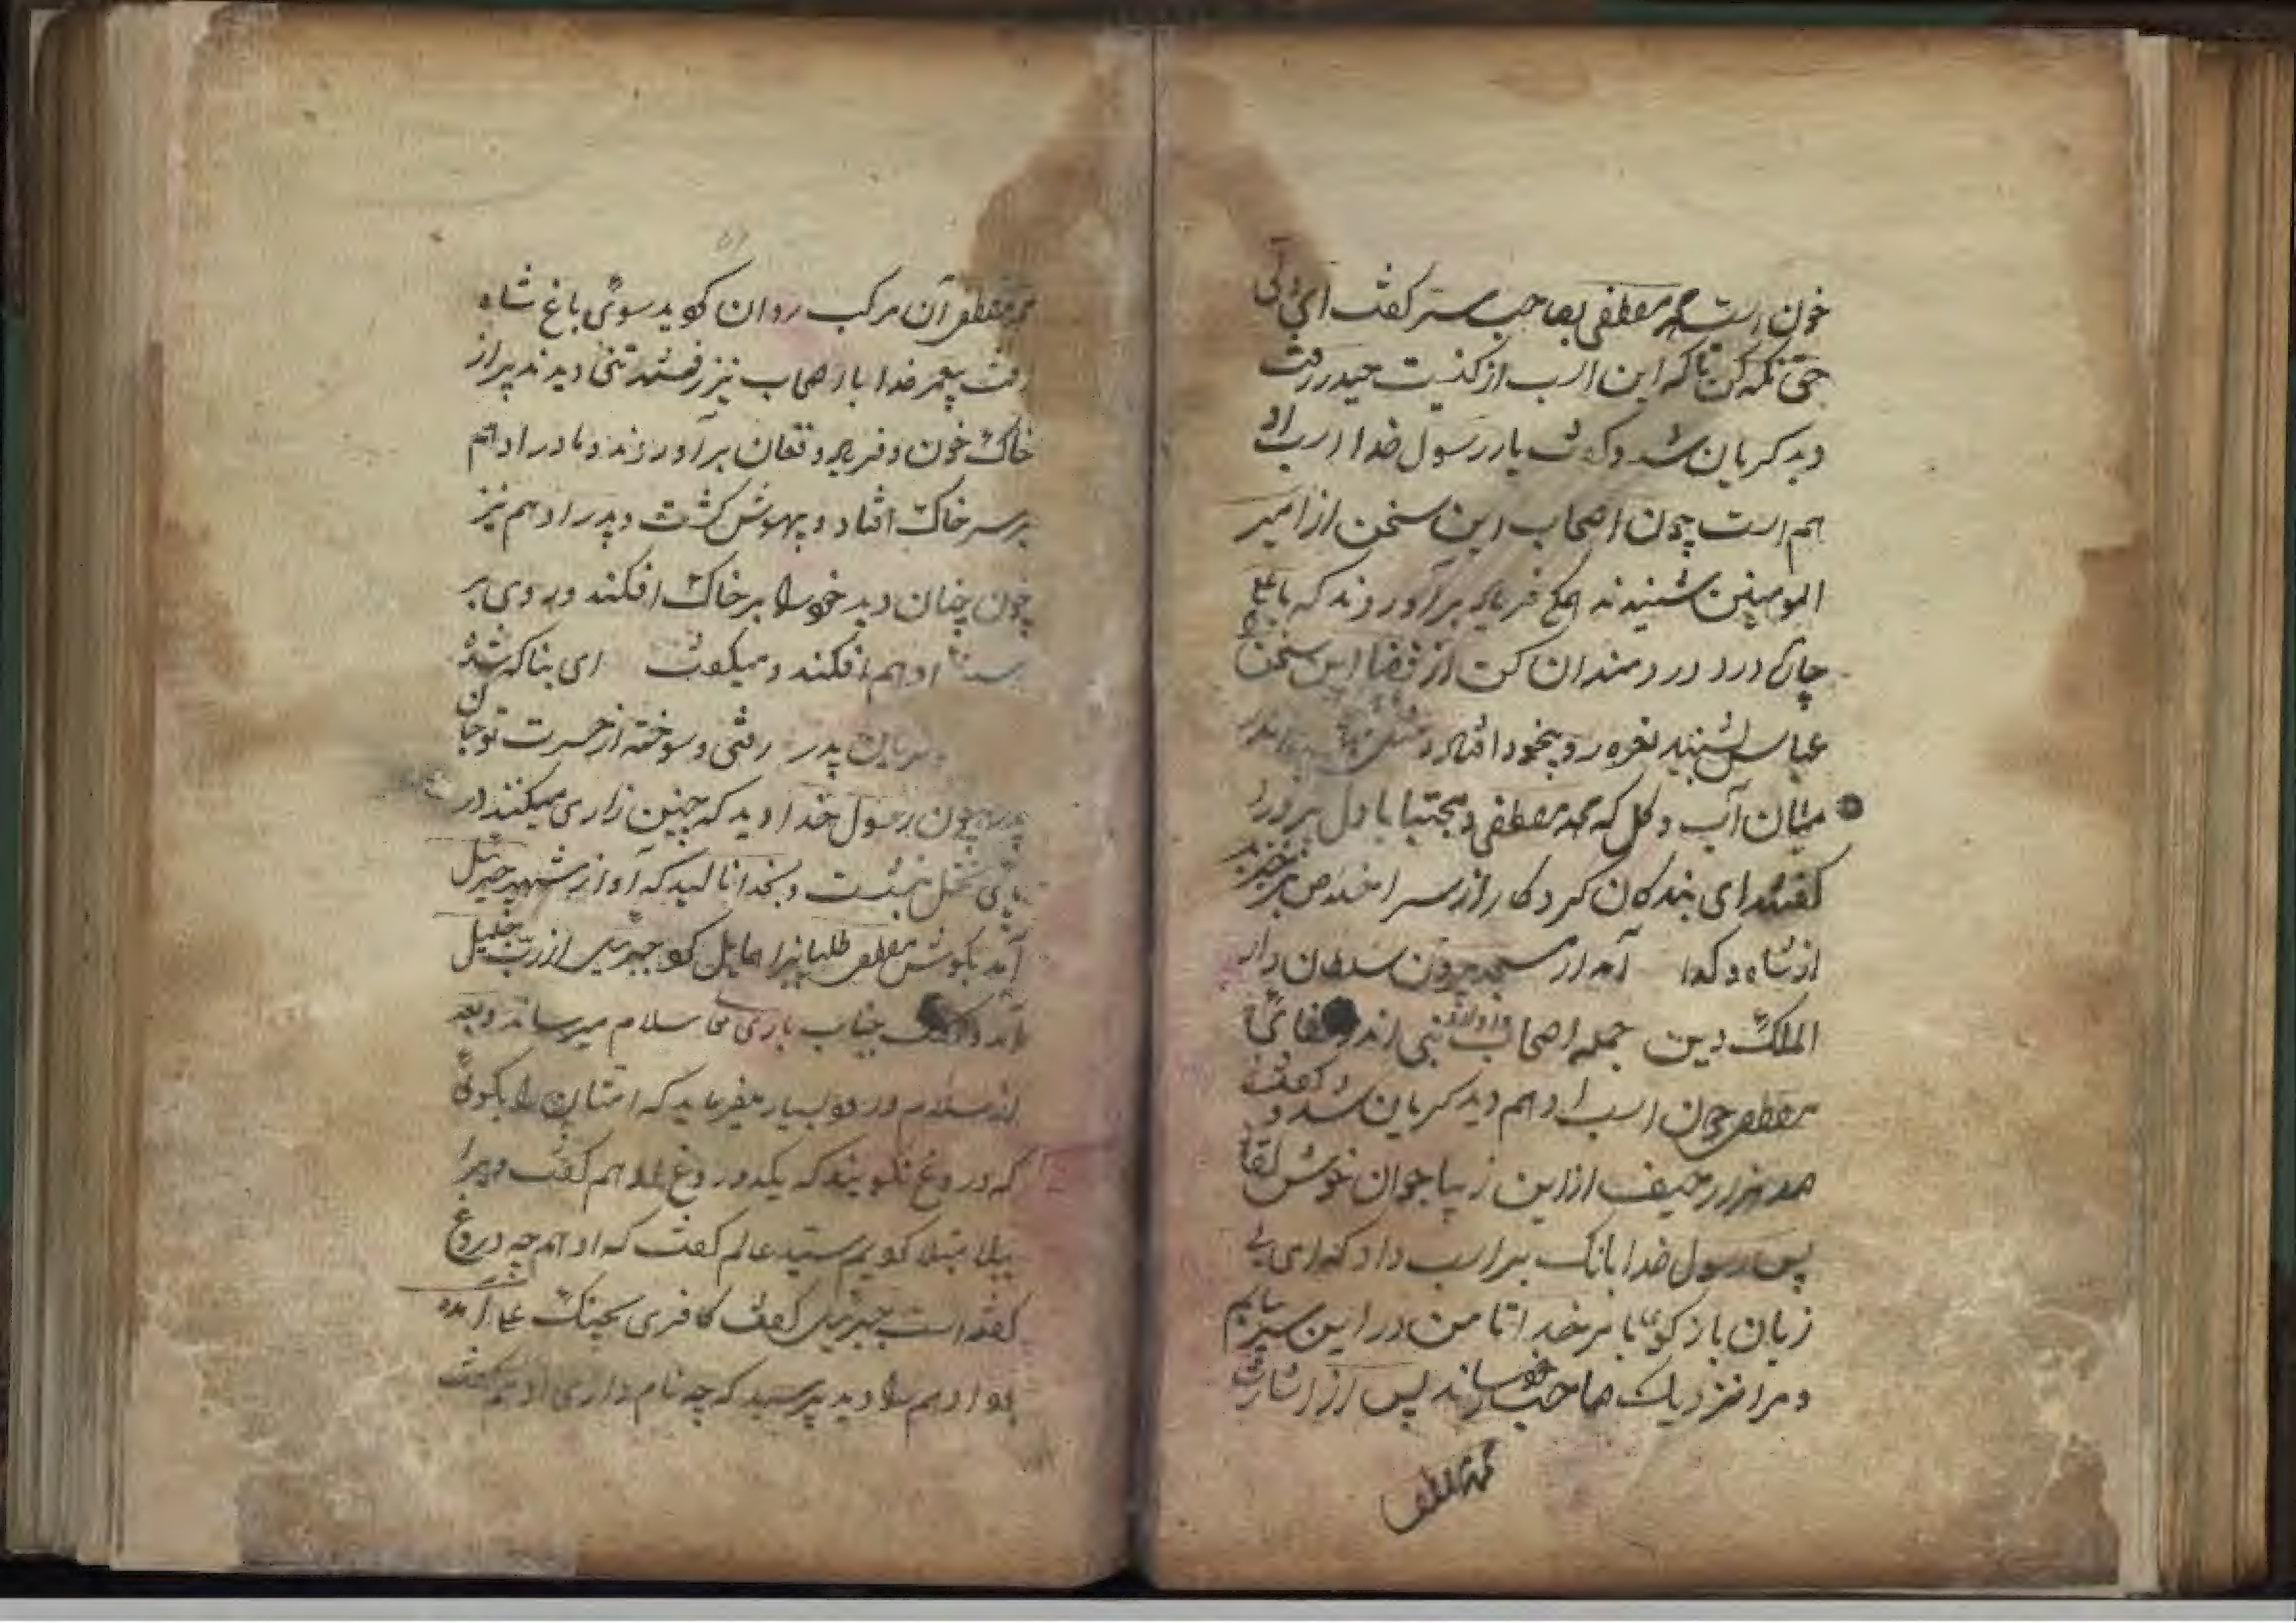 خون است محمد مصطفی بصاحب ستر کفت ای ولی
حق نکه کن تا که این اسب از کیست حیدر رفت
دید کریان شد و کفت یا رسول خدا اسب اد
هم است چون اصحاب این سخن از امیر
المومینن شنیدند همکی فریاد برآوردند که یا علی
چاره درد دردمندان کن از قضا این سخن
عباس شنید نعره زد و بیخود افتاد
میان آب و کل که محمد مصطفی و مجتبا با دل پر درد
کفتند ای بندکان کردکار از سر اخلاص برخیزید
از شاه و کدا آمد از مسجد برون سلطان دار
الملک دین جمله اصحاب نبی اند
مصطفی چون اسب ادهم دید کریان شد و کفت
صد هزار حیف از این زیبا جوان خوش لقا
پس رسول خدا بانک بر اسب داد که ای بی
زبان باز کوی با برخدا تا من در این سر بیابم
و مرا نزدیک صاحب خود رساند پس از اشارت
محمد مصطفی
محمد مصطفی آن مرکب روان کردید سوئی باغ شاه
رفت پیغمبر خدا با اصحاب نیز رفتند تنی دیدند پر از
خاک خون و فریاد و فغان برآوردند و مادر ادهم
بر سر خاک افتاد و بیهوش کشت و پدر ادهم نیز
چون چنان دید خود را بر خاک افکند و روی بر
سینه ادهم افکند و میکفت ای بناکه شده
پدر رفتی و سوخته از حسرت تو جان
پدر چون رسول خدا دید که چنین زاری میکنند در
پای نخل بنشست و بخدا نالید که آواز شهپر جبرئیل
آمد بکوش مصطفی جبرئیل از رب جلیل
آمد و کفت جناب باری تعا سلام میرساند و بعد
از سلام درود بسیار میفرماید که امتان را بکوئی
که دروغ نکویند که یکدروغ ادهم کفت و مرا
مبتلا کویم سید عالم کفت که ادهم چه دروغ
کفته است جبرئیل کفت کافری بجنک علی آمده
بود ادهم را دید پرسید که چه نام داری ادهم کفت